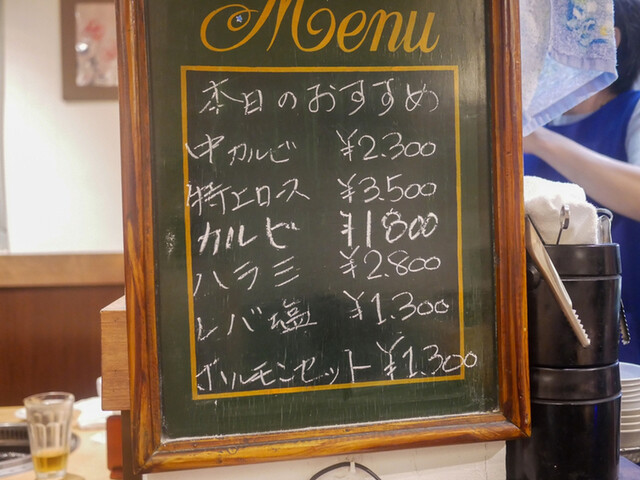 Menu
本日のおすすめ
中カルビ ¥2.300
特上ロース ¥3.500
カルビ ¥1800
ハラミ ¥2.800
レバ塩 ¥1.300
ホルモンセット ¥1.300